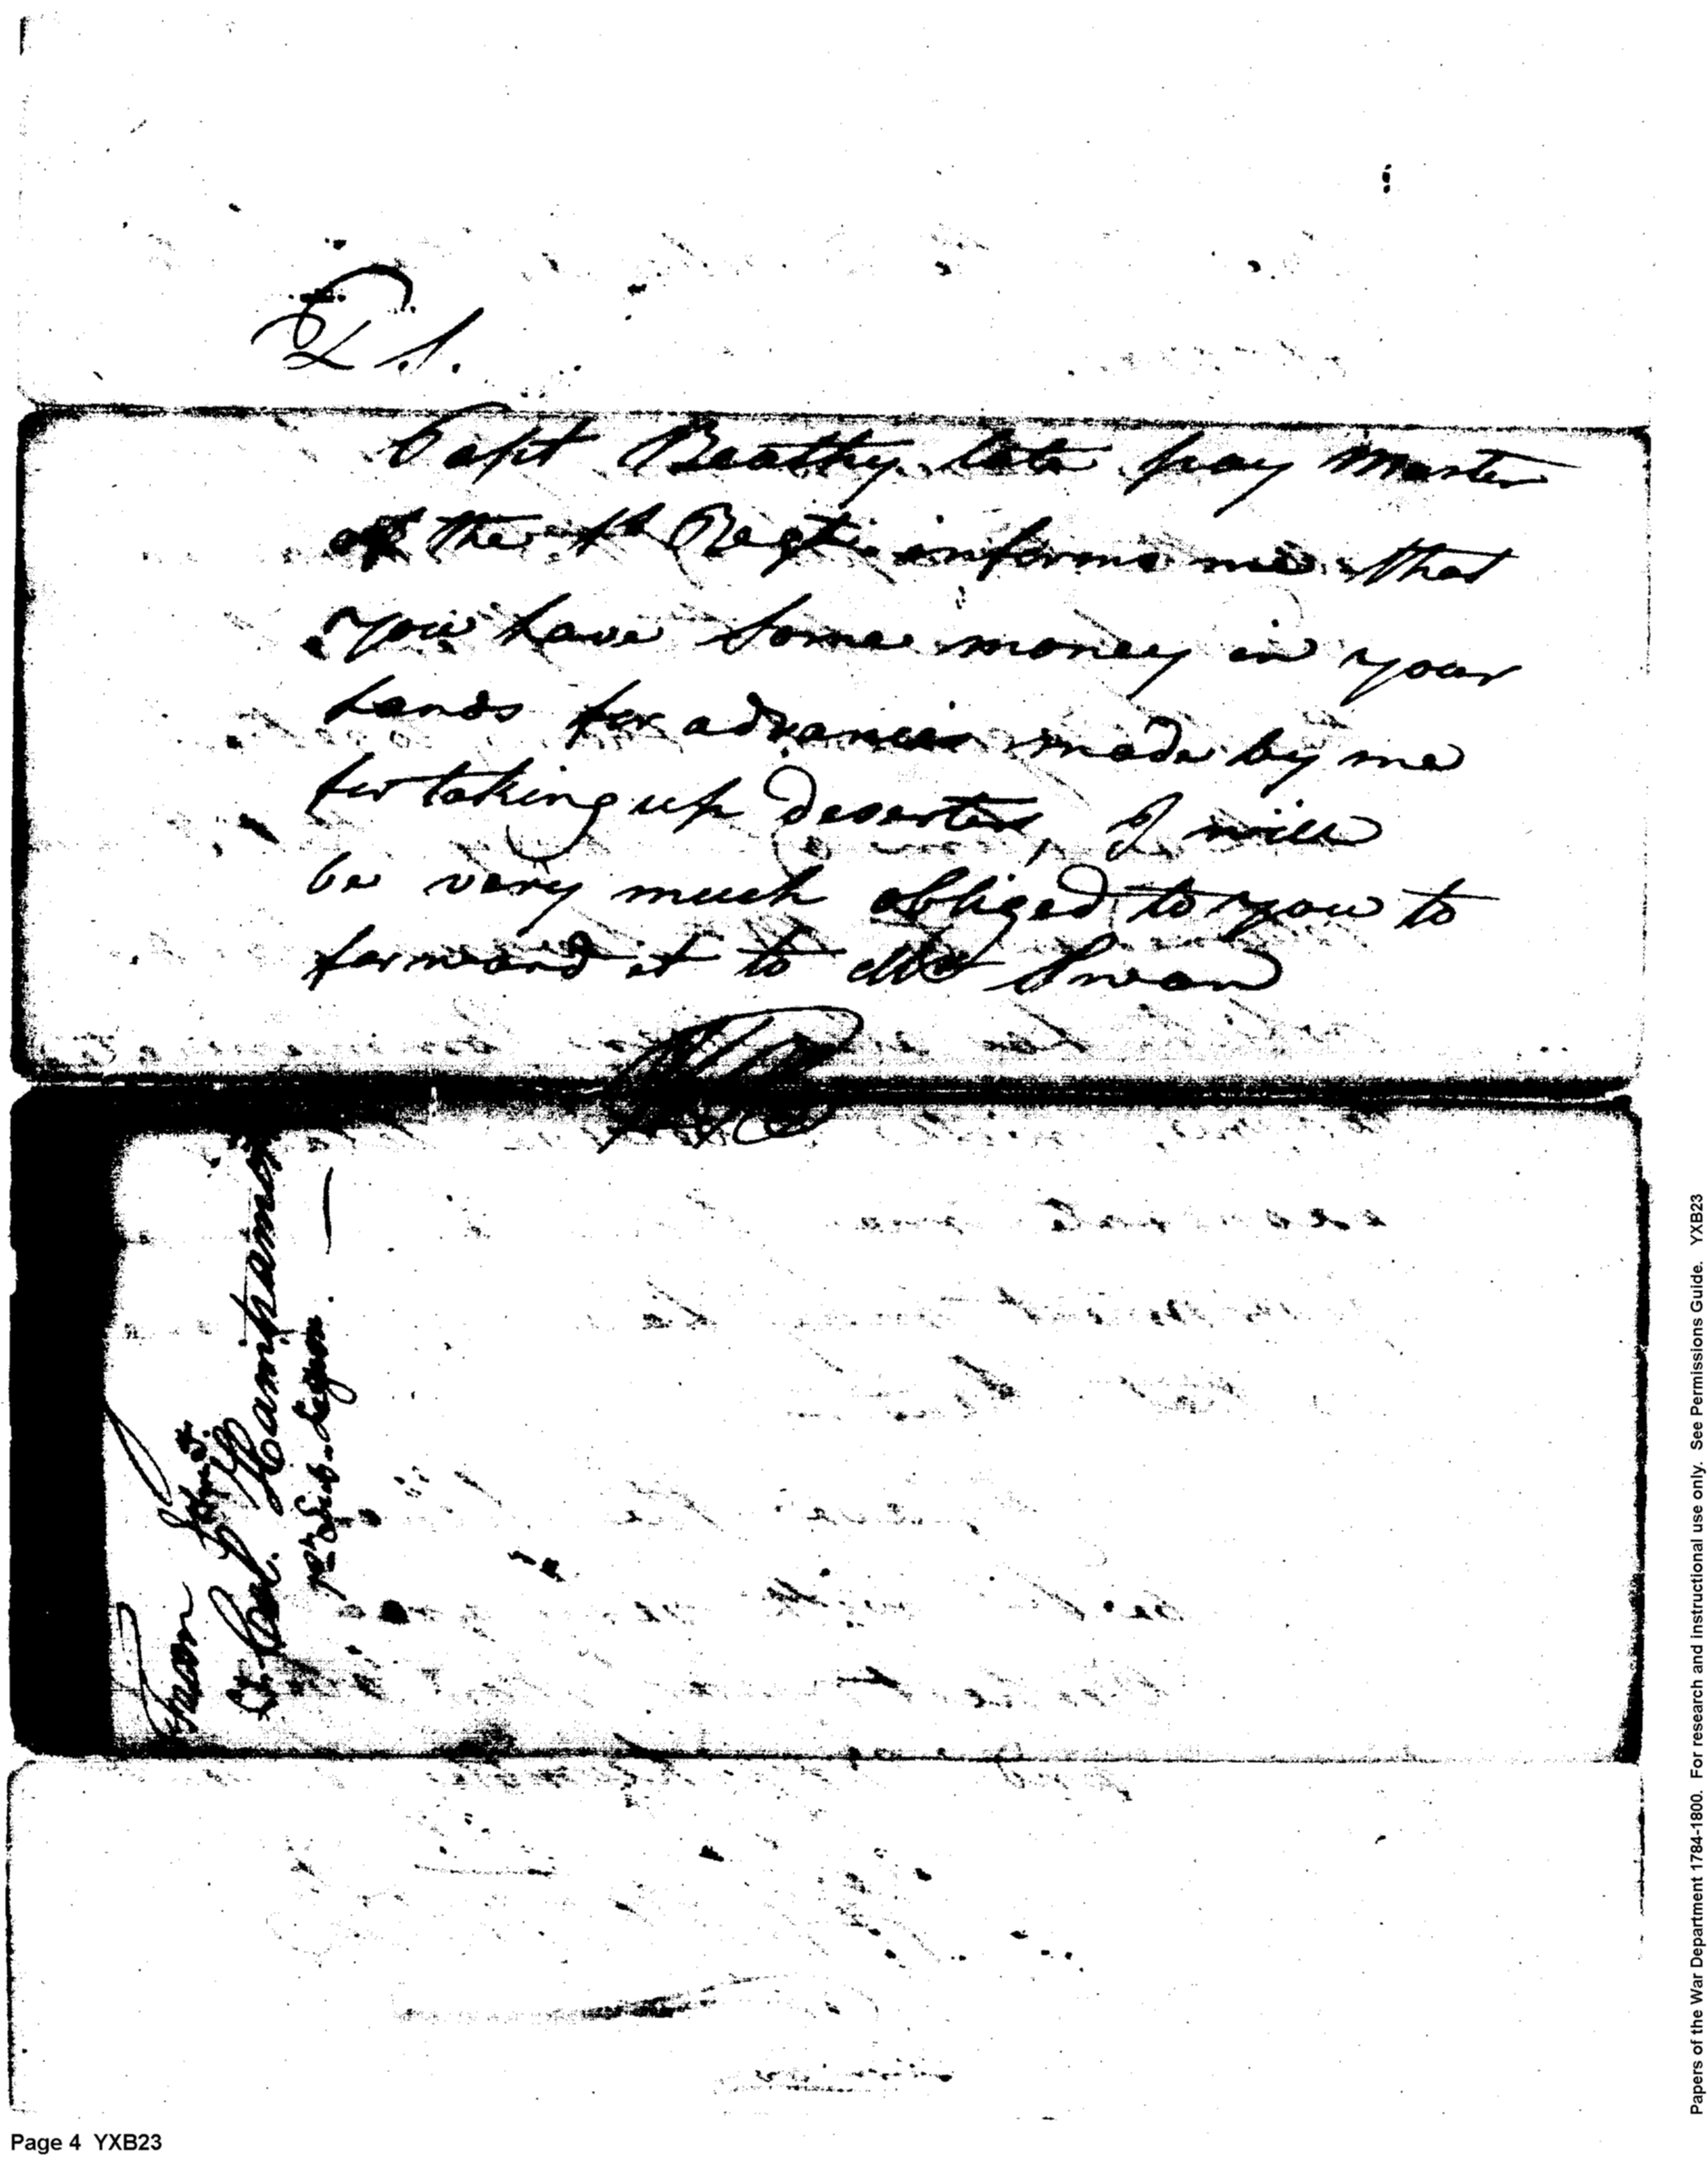 P.S.
Capt Beatty late pay Master
of the 1st Regt informs me that
you have some money in your
hands for advances made by me
for taking up deserters, I will
be very much obliged to you to
forward it to Mr Swan
From
Lt. Col. Hamtramck
1st Sub-Legion. —
Page 4 YXB23
Papers of the War Department 1784-1800. For research and instructional use only. See Permissions Guide. YXB23